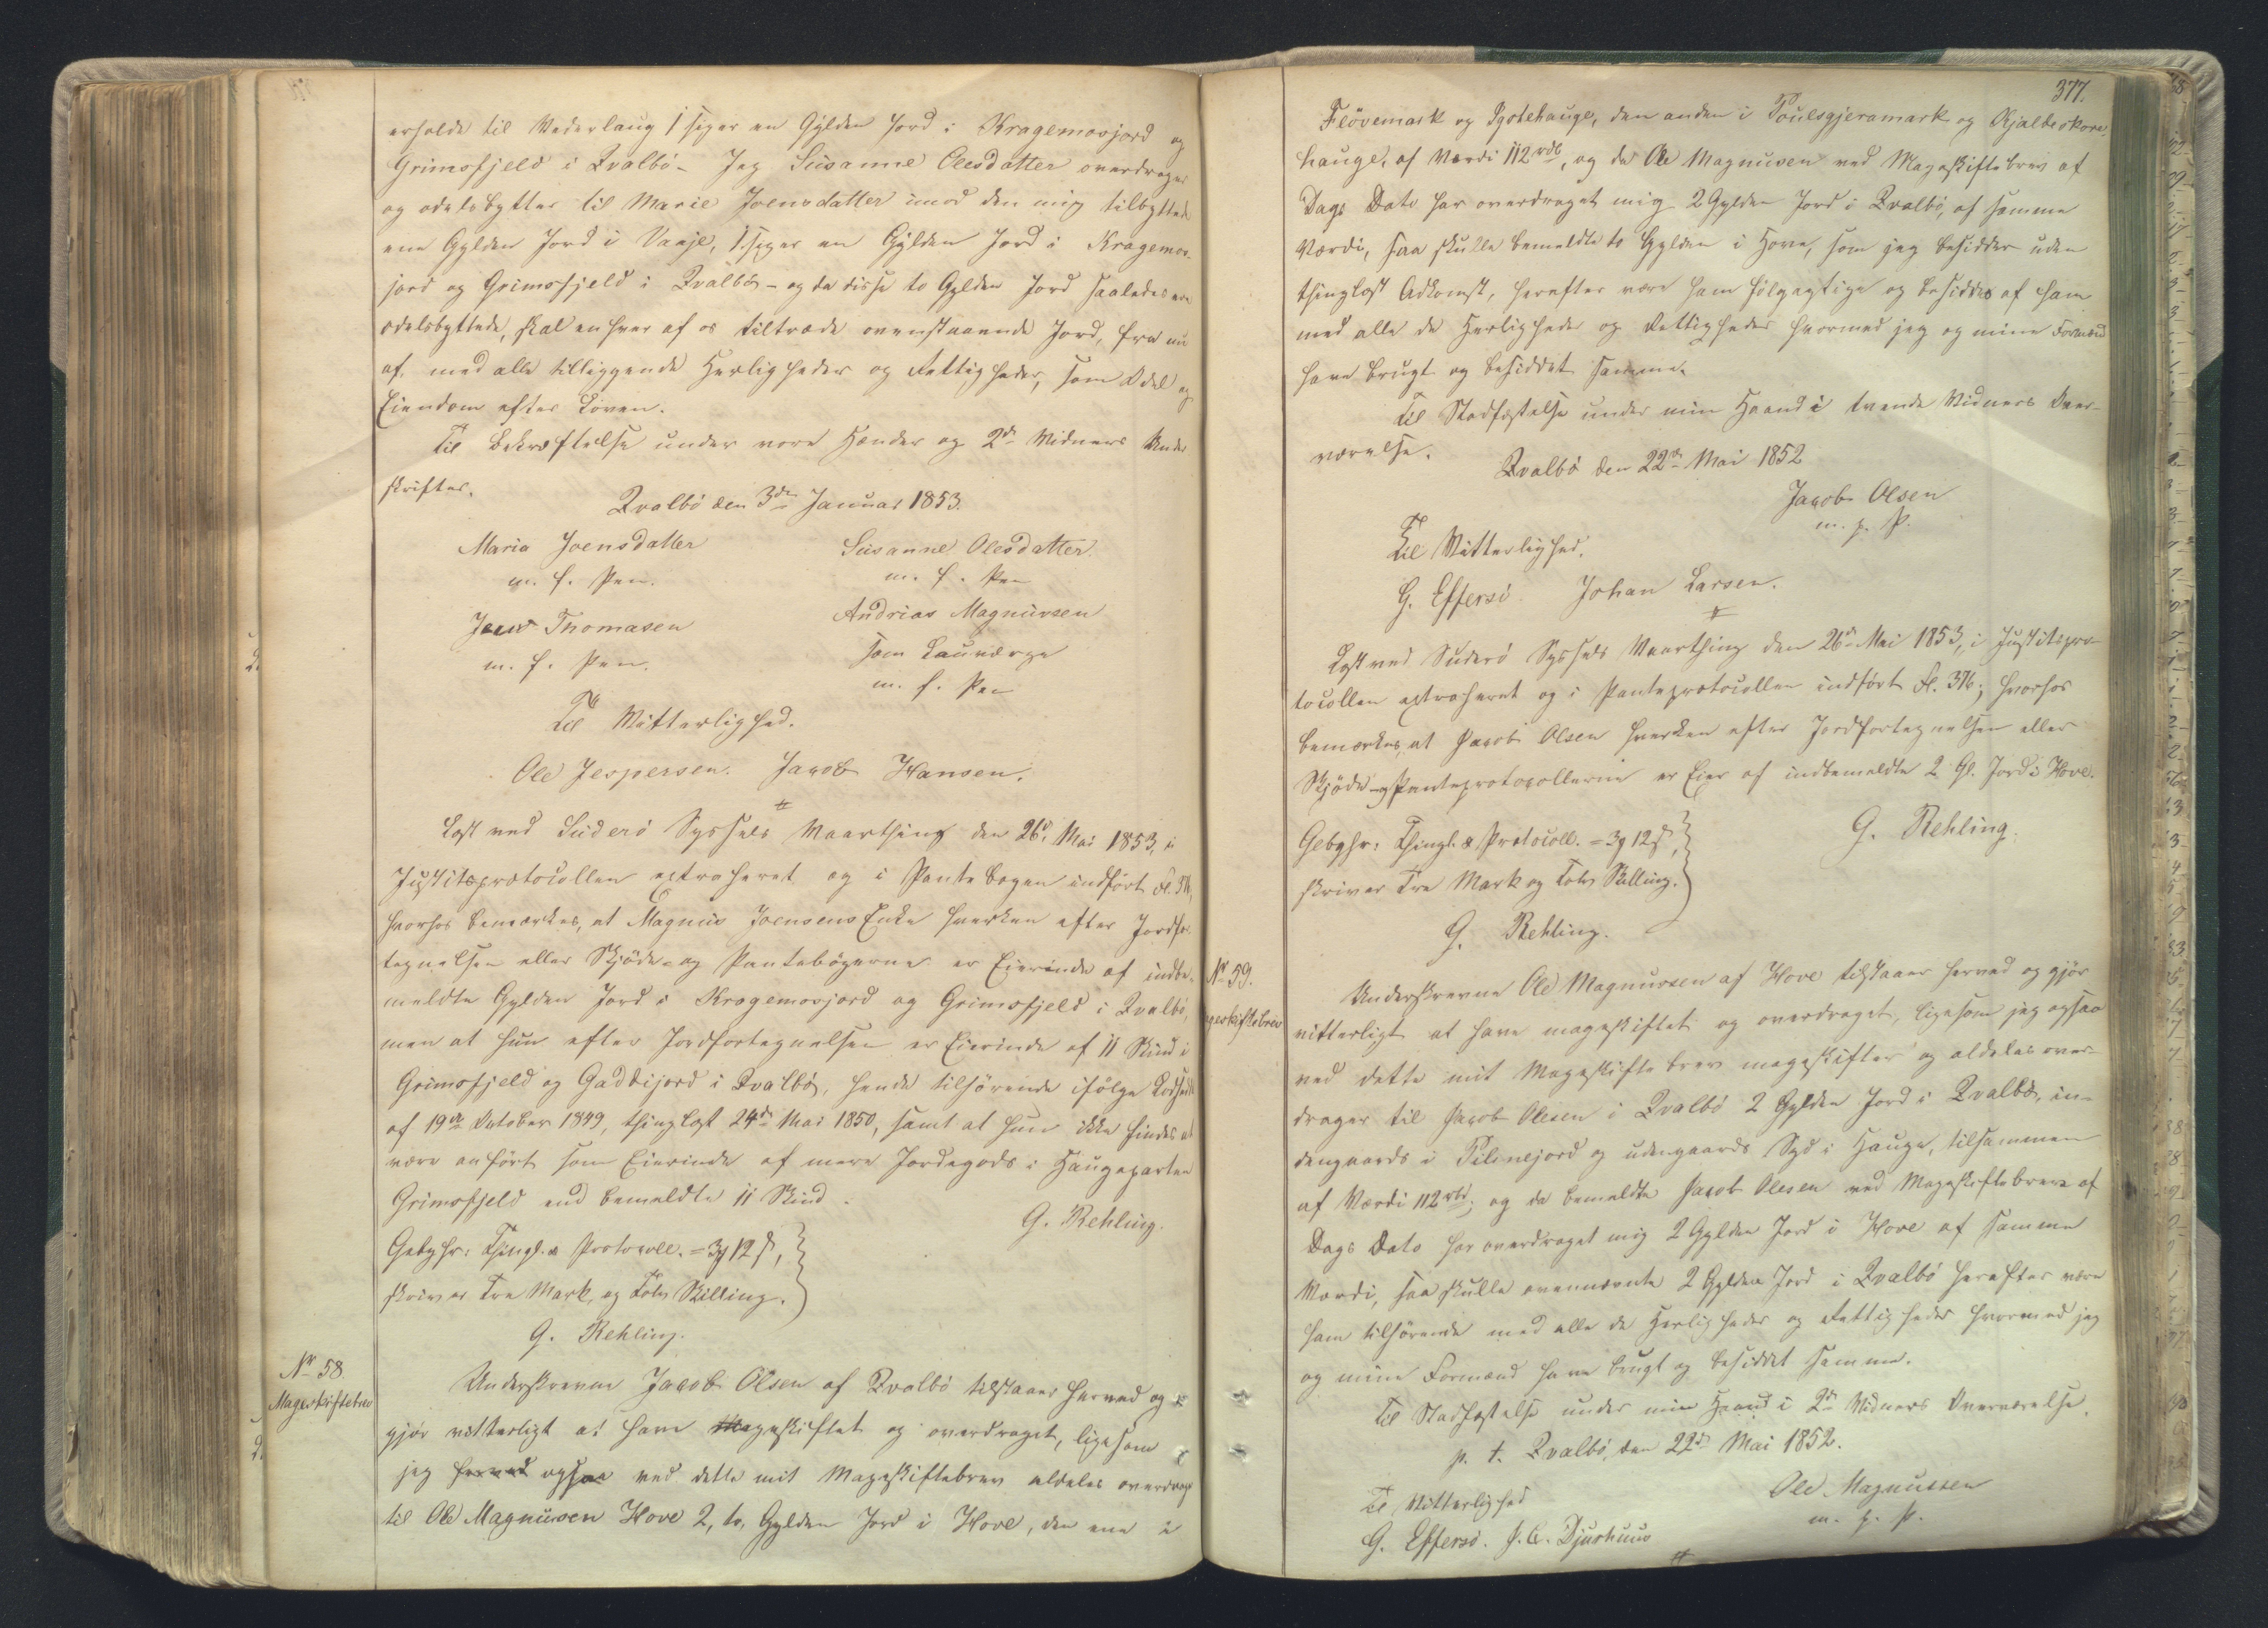 erholde til Vederlaug 1 siger en Gylden Jord i Kragemosjord og
Grimsfjeld i Qvalbö – Jeg Susanne Olesdatter overdrager
og odelsbytter til Marie Joensdatter imod den mig tilbyttede
ene Gylden Jord i Vaaje, 1 siger en Gylden Jord i Kragemos-
jord og Grimsfjeld i Qvalbö – og da disse to Gylden Jord saaledes ere
odelsbyttede, skal enhver af os tiltræde ovenstaaende Jord, fra nu
af, med alle tilliggende Herligheder og Rettigheder, som Odel og
Eiendom efter Loven.
Til Bekræftelse under vore Hænder og 2de Vidners Under
skrifter.
Qvalbö den 3die Januar 1853.
Maria Joensdatter
m. f. Pen.
Susanne Olesdatter.
m. f. Pen
Jens Thomasen
m. f. Pen.
Andrias Magnussen
som Lauværge
m. f. Pen
Til Vitterlighed.
Ole Jespersen. Jacob Hansen.
Læst ved Suderö Syssels Vaarthing den 26d. Mai 1853, i
Justitsprotocollen extraheret og i Pantebogen indfört Fl. 376,
hvorhos bemærkes, at Magnus Joensens Enke hverken efter Jordfor
tegnelsen eller Skjöde- og Pantebögerne er Eierinde af indbe-
meldte Gylden Jord i Kragemosjord og Grimsfjeld i Qvalbö,
men at hun efter Jordfortegnelsen er Eierinde af 11 Skind i
Grimsfjeld og Gaddijord i Qvalbö, hende tilhörende ifölge Lodseddel
af 19de October 1849, thinglæst 24de Mai 1850, samt at hun ikke findes at
være anfört som Eierinde af mere Jordegods i Haugeparten
Grimsfjeld end bemeldte 11 Skind.
G. Rehling.
Gebyhr: Thingl. & Protocoll. = 3 12 ß,
skriver Tre Mark, og Tolv Skilling.
G. Rehling.
No 58.
Mageskiftebrev
Underskrevne Jacob Olsen af Qvalbö tilstaaer herved og
gjör vitterligt at have Mageskiftet og overdraget, ligesom
jeg herved ogsaa ved dette mit Mageskiftebrev aldeles overdrager
til Ole Magnussen Hove 2, to, Gylden Jord i Hove, den ene i
377.
Flövemark og Igotehauge, den anden i Poulsgjeramark og Kjalbeskore,
hauge, af Værdi 112 rdl, og da Ole Magnussen ved Mageskiftebrev af
Dags Dato har overdraget mig 2 Gylden Jord i Qvalbö, af samme
Værdi, saa skulle bemeldte to Gylden i Hove, som jeg besidder uden
thinglæst Adkomst, herefter være ham fölgagtige og besiddes af ham
med alle de Herligheder og Rettigheder hvormed jeg og mine Formænd
have brugt og besiddet samme.
Til Stadfæstelse under min Haand i tvende Vidners Over-
værelse.
Qvalbö den 22de Mai 1852
Jacob Olsen
m. p. P.
Til Vitterlighed.
G. Effersö. Johan Larsen.
Læst ved Suderö Syssels Vaarthing den 26de Mai 1853, i Justitspro-
tocollen extraheret og i Panteprotocollen indfört Fl. 376; hvorhos
bemærkes, at Jacob Olsen hverken efter Jordfortegnelsen eller
Skjöde- og Panteprotocollerne er Eier af indbemeldte 2 Gl. Jord i Hove.
G. Rehling.
Gebyhr: Thingl. & Protocoll. = 3 12 ß,
skriver Tre Mark og Tolv Skilling.
G. Rehling.
No 59.
geskiftebrev
Underskrevne Ole Magnussen af Hove tilstaaer herved og gjör
vitterligt at have mageskiftet og overdraget, ligesom jeg ogsaa
ved dette mit Mageskiftebrev mageskifter og aldeles over-
drager til Jacob Olesen i Qvalbö 2 Gylden Jord i Qvalbö, in-
dengaards i Pilsnejord og udengaards Syd i Hauge, tilsammen
af Værdi 112 rbd; og da bemeldte Jacob Olesen ved Mageskiftebrev af
Dags Dato har overdraget mig 2 Gylden Jord i Hove af samme
Værdi, saa skulle ovennævnte 2 Gylden Jord i Qvalbö herefter være
ham tilhörende med alle de Herligheder og Rettigheder hvormed jeg
og mine Formænd have brugt og besiddet samme.
Til Stadfæstelse under min Haand i 2de Vidners Overværelse.
p. t. Qvalbö, den 22de Mai 1852.
Ole Magnussen
m. p. P.
Til Vitterlighed
G. Effersö. J. C. Djurhuus